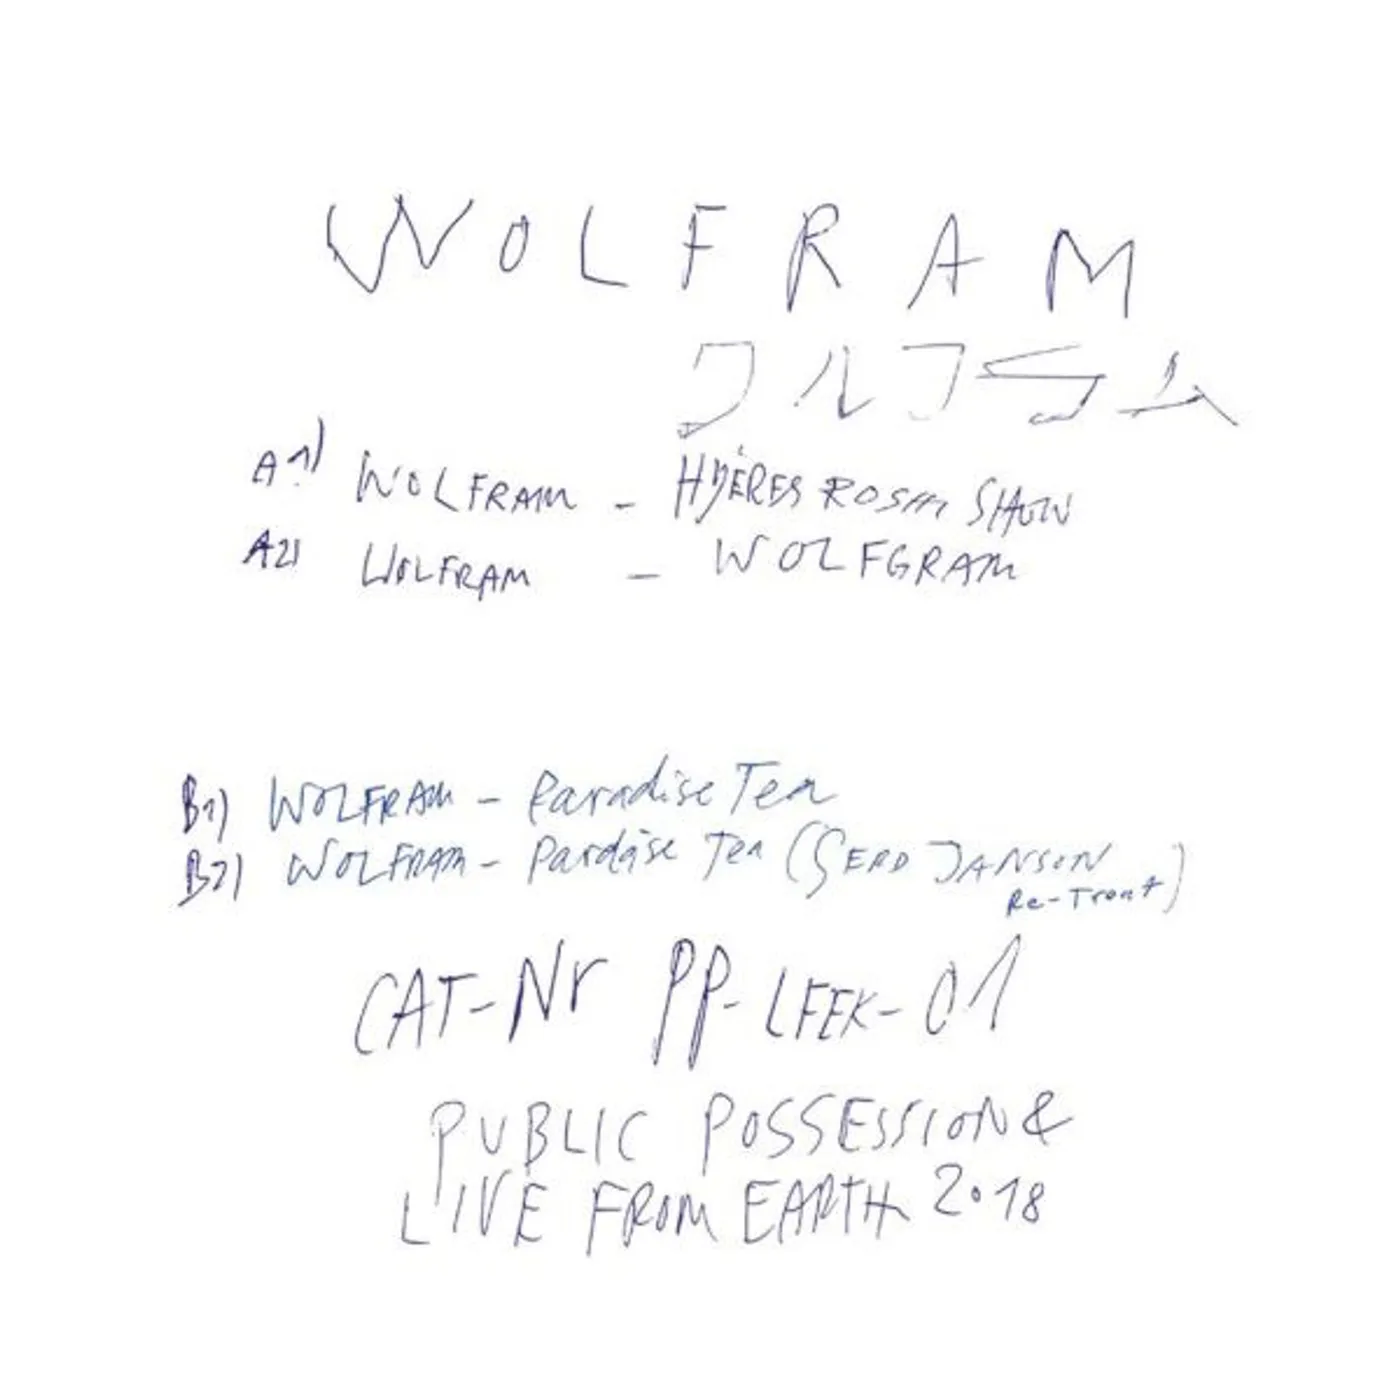 WOLFRAM
A1) WOLFRAM - HYÈRES ROSM SHOW
A2) WOLFRAM - WOLFGRAM
B1) WOLFRAM - Paradise Tea
B2) WOLFRAM - Pardaise Tea (GERD JANSON
Re-Treat)
CAT-Nr PP-LFEK-01
PUBLIC POSSESSION &
LIVE FROM EARTH 2018